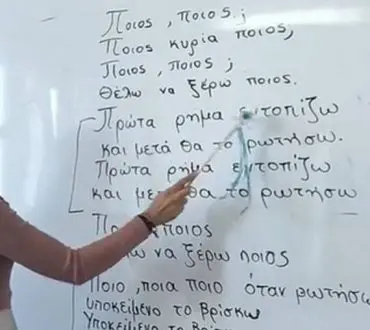 Ποιος, ποιος;
Ποιος κυρία ποιος,
Ποιος, ποιος;
Θέλω να ξέρω ποιος.
Πρώτα ρημα εντοπίζω
και μετά θα το ρωτήσω.
Πρώτα ρήμα εντοπίζω
και θα το ρωτήσω
ποιος
να ξέρω ποιος
Ποιο, ποια ποιο όταν ρωτήσω
υποκείμενο το βρίσκω
Υποκείμενο το βρίσκω